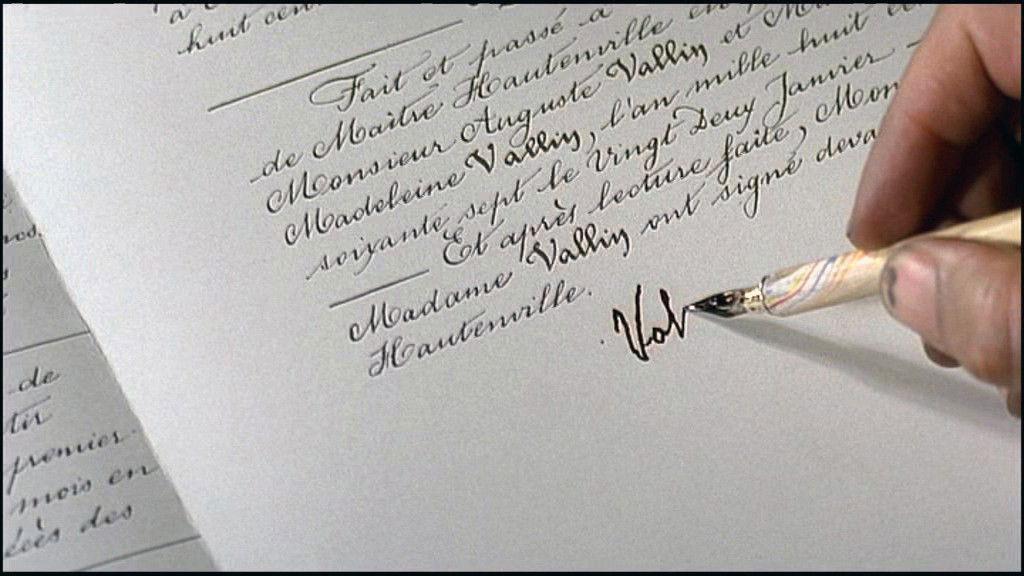 à C
huit cent
Fait et passé à
de Maître Hautenville en
Monsieur Auguste Vallin et M
Madeleine Vallin, l'an mille huit ce
soixante sept le Vingt Deux Janvier
Et après lecture faite, Mon
Madame Vallin ont signé deva
Hautenville.
Val
de
tir
premier
mois en
des